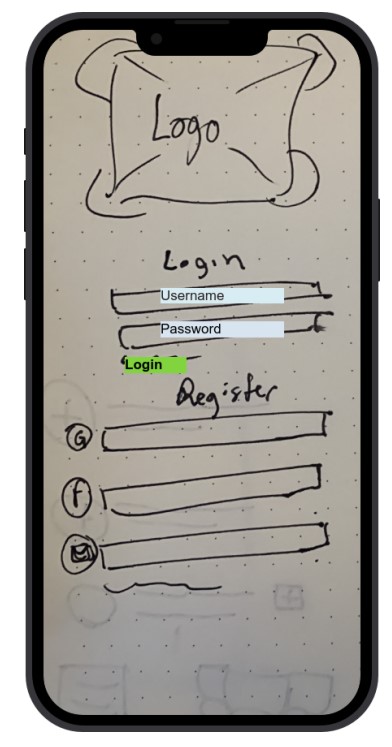 Logo
Login
Username
Password
Login
Register
G
f